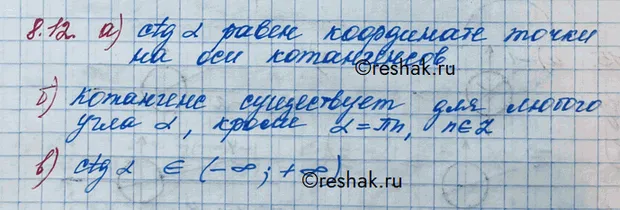 8.12. а) ctg α равен координате точки
на оси котангенсов
©reshak.ru
б) Котангенс существует для любого
угла α, кроме α = πn, n ∈ Z
в) ctg α ∈ (-∞; +∞)
©reshak.ru